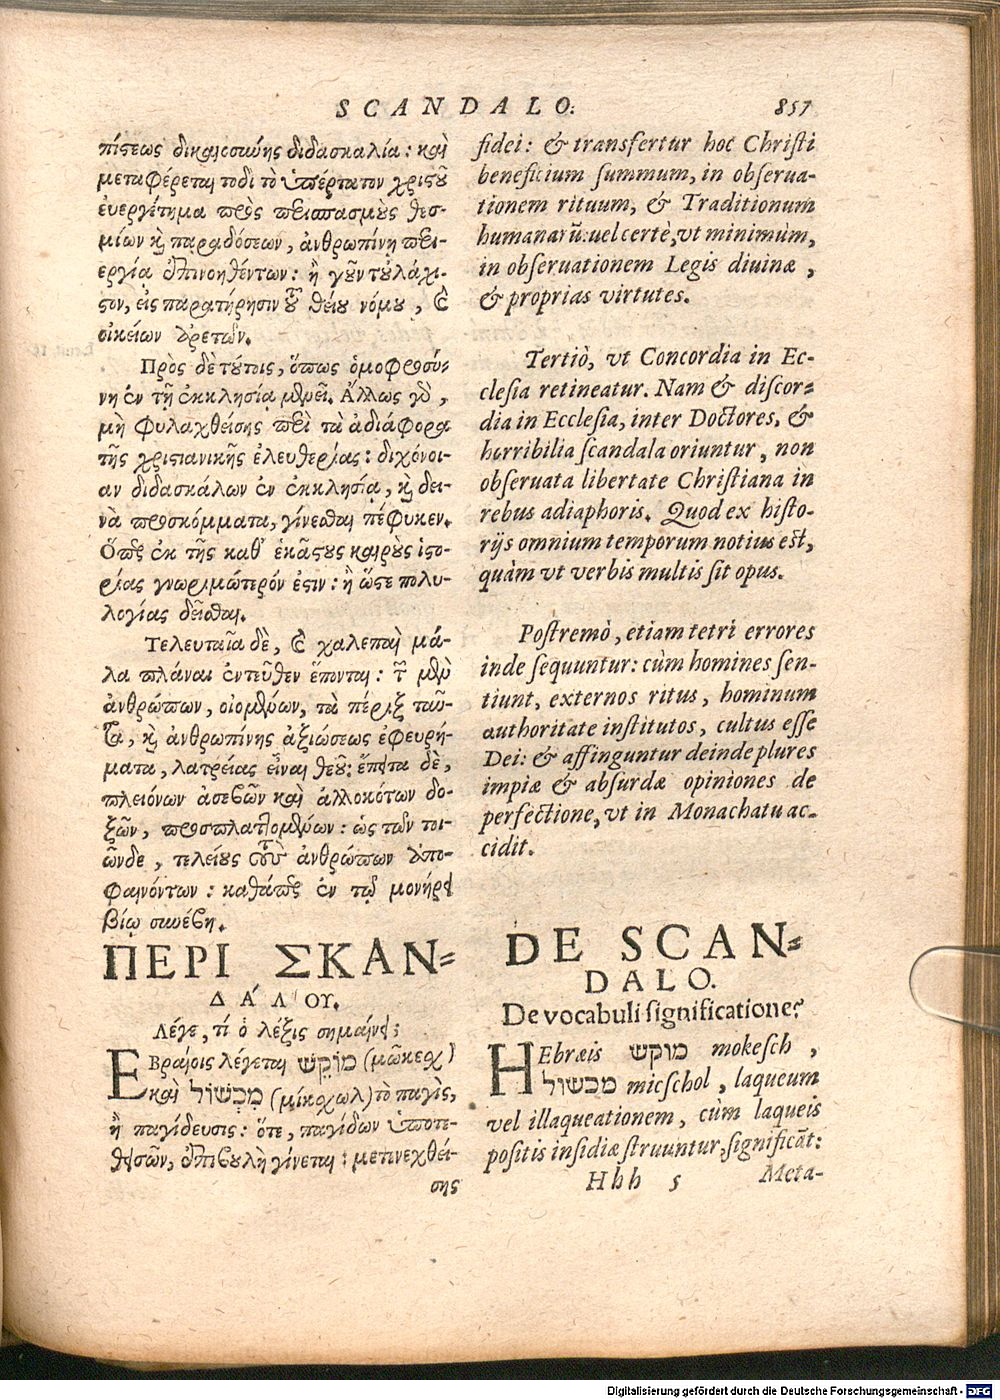 SCANDALO. 857
πίστεως δικαιοσύνης διδασκαλία: καὶ
μεταφέρεται τοδὶ τὸ ὑπέρτατον χριστοῦ
ἐυεργέτημα πρὸς περισπασμοὺς θεσ-
μίων κὶ παραδόσεων, ἀνθρωπίνῃ περι-
εργίᾳ ἐπινοηθέντων: ἢ γοῦν τοὐλάχι-
στον, εἰς παρατήρησιν τοῦ θείου νόμου, καὶ
οἰκείων ἀρετῶν.
Πρὸς δὲ τούτοις, ὅπως ὁμοφροσύ-
νη ἐν τῇ ἐκκλησίᾳ μένει. Ἄλλως γὸ,
μὴ φυλαχθείσης περὶ τὰ ἀδιάφορα
τῆς χριστιανικῆς ἐλευθερίας: διχόνοι-
αν διδασκάλων ἐν ἐκκλησίᾳ, κὶ δει-
νὰ προσκόμματα, γίνεσθαι πέφυκεν.
Ὅπερ ἐκ τῆς καθ' ἑκάστους καιροὺς ἱστο-
ρίας γνωριμώτερόν ἐστιν: ἢ ὥστε πολυ-
λογίας δεῖσθαι.
Τελευταῖα δὲ, καὶ χαλεπαὶ μά-
λα πλάναι ἐντεῦθεν ἕπονται: τῶν μὲν
ἀνθρώπων, οἰομένων, τὰ πέριξ ταῦ-
τα, κὶ ἀνθρωπίνης ἀξιώσεως ἐφευρή-
ματα, λατρείας εἶναι θεοῦ: ἔπειτα δὲ,
πλειόνων ἀσεβῶν καὶ ἀλλοκότων δο-
ξῶν, προσπλαττομένων: ὡς τῶν τοι-
ῶνδε, τελείους τοὺς ἀνθρώπων ἀπο-
φαινόντων: καθάπερ ἐν τῷ μονήρει
βίῳ συνέβη.
ΠΕΡΙ ΣΚΑΝ-
ΔΑ΄ΛΟΥ.
Λέγε, τί ὁ λέξις σημαίνει;
ΕΒραίοις λέγεται מוֹקֵשׁ (μῶκεσχ)
καὶ מִכְשׁוֹל (μίκσχωλ) τὸ παγὶς,
ἢ παγίδευσις: ὅτε, παγίδων ὑποτε-
θεισῶν, ἐπιβουλὴ γίνεται: μετενεχθεί-
σης
fidei: & transfertur hoc Christi
beneficium summum, in obserua-
tionem rituum, & Traditionum
humanarũ: uel certè, vt minimùm,
in obseruationem Legis diuinæ,
& proprias virtutes.
Tertiò, vt Concordia in Ec-
clesia retineatur. Nam & discor-
dia in Ecclesia, inter Doctores, &
horribilia scandala oriuntur, non
obseruata libertate Christiana in
rebus adiaphoris. Quod ex histo-
rijs omnium temporum notius est,
quàm vt verbis multis sit opus.
Postremò, etiam tetri errores
inde sequuntur: cùm homines sen-
tiunt, externos ritus, hominum
authoritate institutos, cultus esse
Dei: & affinguntur deinde plures
impiæ & absurdæ opiniones de
perfectione, vt in Monachatu ac-
cidit.
DE SCAN-
DALO.
De vocabuli significatione?
HEbræis מוקש mokesch,
מכשול micschol, laqueum
vel illaqueationem, cùm laqueis
positis insidiæ struuntur, significãt:
Hhh 5 Meta-
Digitalisierung gefördert durch die Deutsche Forschungsgemeinschaft - DFG